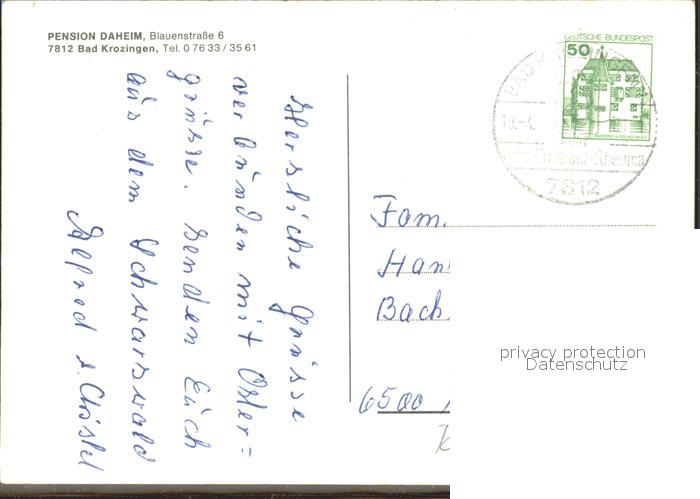 PENSION DAHEIM, Blauenstraße 6
7812 Bad Krozingen, Tel. 0 76 33 / 35 61
Herzliche Grüsse
verbunden mit Oster=
grüsse. senden Euch
aus dem Schwarzwald
Alfred u. Christel
DEUTSCHE BUNDESPOST
50
BAD KROZINGEN
13.-4.
Rheuma
7812
Fam.
Han
Bach
6500
privacy protection
Datenschutz